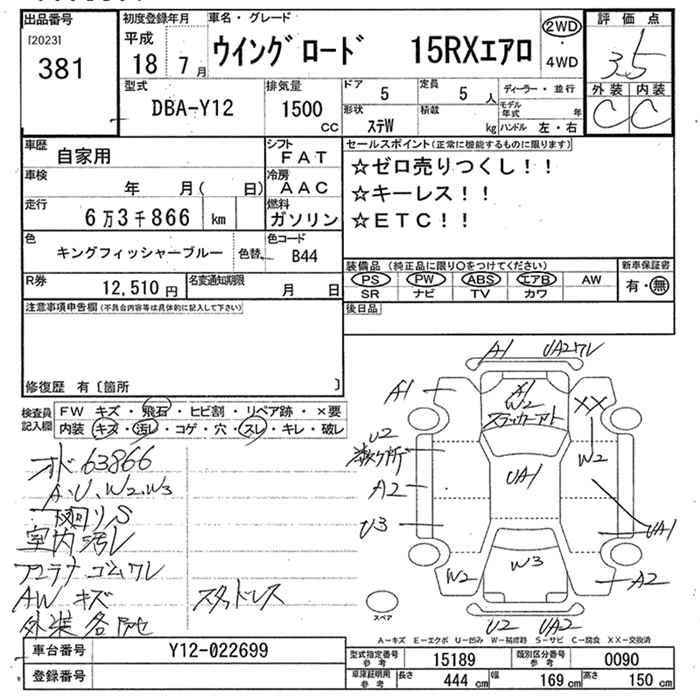 出品番号
[2023]
381
初度登録年月
平成
18 7月
車名・グレード
ウイングロード 15RXエアロ
2WD
・
4WD
評価点
3.5
外装 内装
C C
型式
DBA-Y12
排気量
1500
CC
ドア
5
定員
5人
形状
ステW
積載
kg
ディーラー・並行
モデル年式 年
ハンドル 左・右
車歴
自家用
シフト
FAT
車検
年 月( 日)
冷房
AAC
走行
6万3千866 km
燃料
ガソリン
色
キングフィッシャーブルー
色替
色コード
B44
R券
12,510円
名変通知期限
月 日
セールスポイント(正常に機能するものに限ります)
☆ゼロ売りつくし!!
☆キーレス!!
☆ETC!!
装備品(純正品に限り○をつけてください)
PS PW ABS エアB AW
SR ナビ TV カワ
新車保証書
有・無
後日品
注意事項申告欄(不具合内容等は具体的に記入して下さい)
修復歴 有〔箇所 〕
検査員記入欄
FW キズ・飛石・ヒビ割・リペア跡・×要
内装 キズ・汚レ・コゲ・穴・スレ・キレ・破レ
オド 63866
A.U.W2.W3
下廻リS
室内汚レ
フエラナ ゴムワレ
AW キズ
スタッドレス
A1
UA2ワレ
A1
A1
W2
XX
U2
W2
A2
UA1
U3
UA1
W2
W3
A2
U2
UA2
スペア
A-キズ E-エクボ U-凹み W-補修跡 S-サビ C-腐食 XX-交換済
車台番号
Y12-022699
登録番号
型式指定番号
参考
15189
類別区分番号
参考
0090
車庫証明用
参考
長さ 444 cm
幅 169 cm
高さ 150 cm